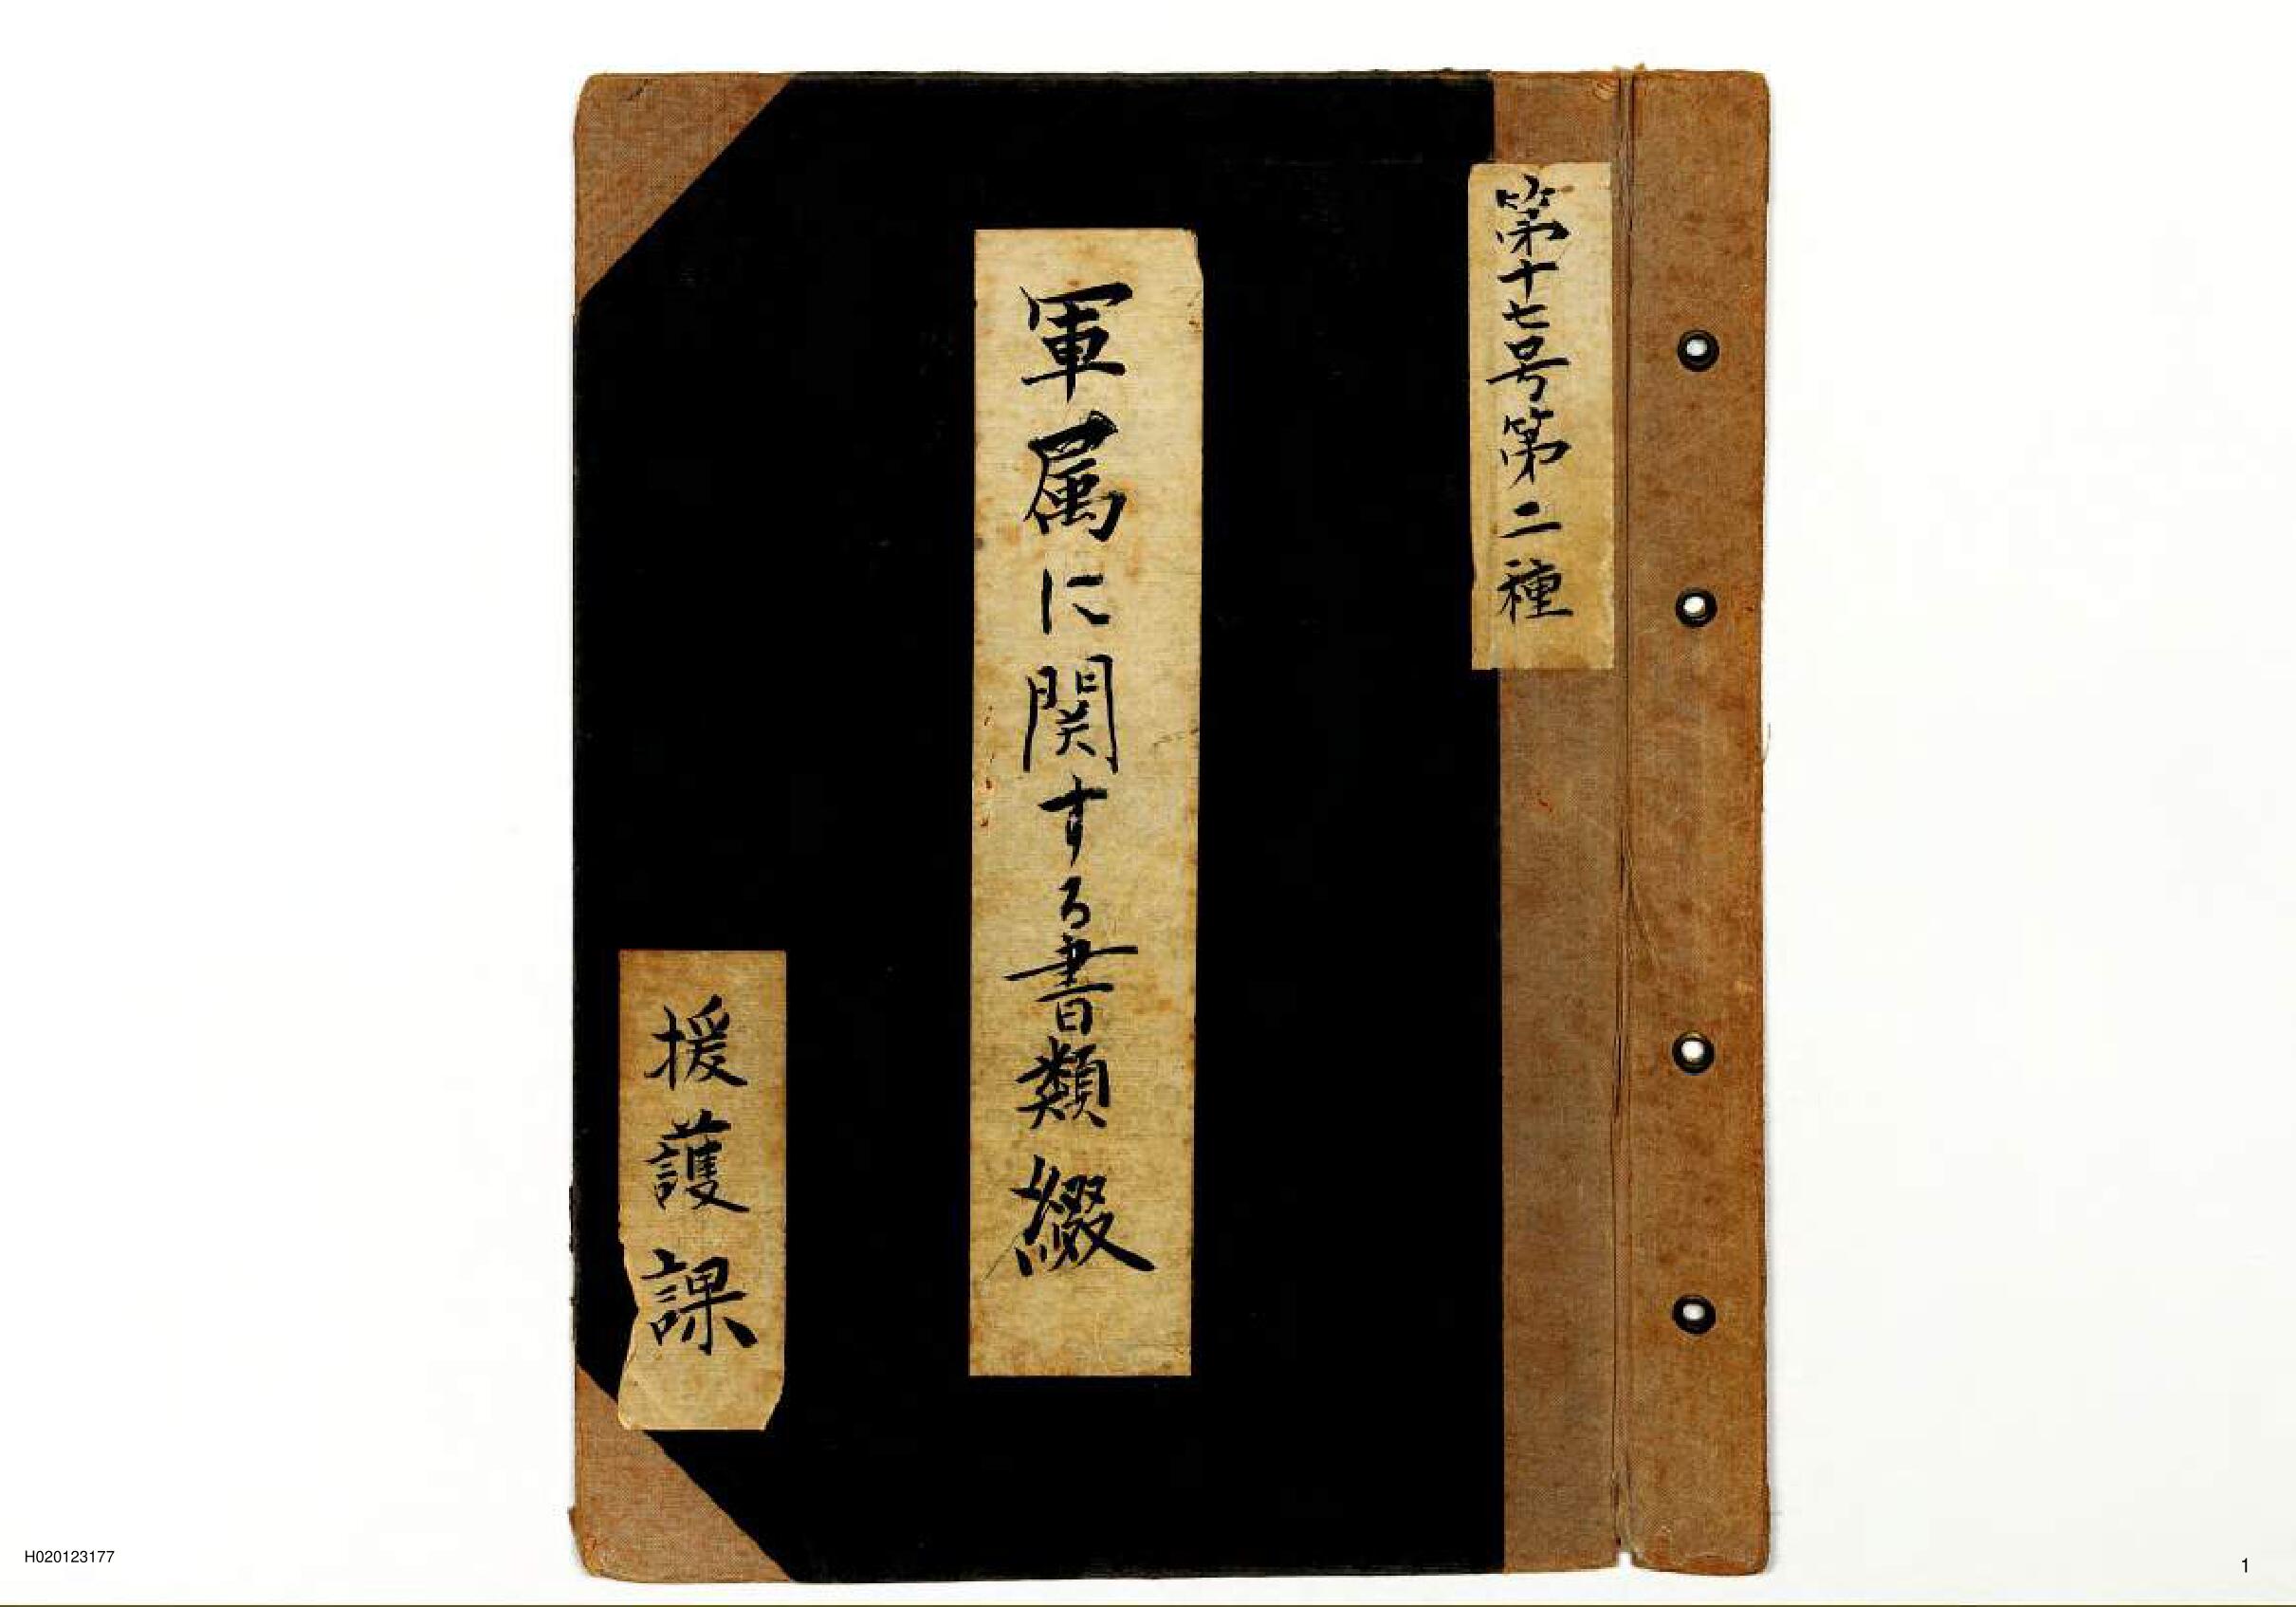 第十七号第二種
軍属に関する書類綴
援護課
H020123177
1